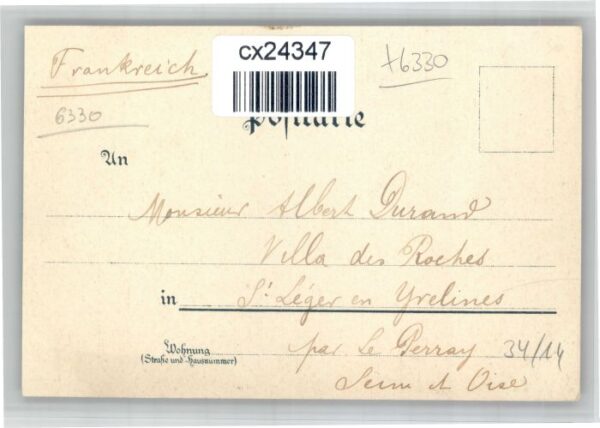 cx24347
Frankreich
+6330
6330
Postkarte
An
Monsieur Albert Durand
Villa des Roches
in St Léger en Yvelines
Wohnung
(Straße und Hausnummer)
par Le Perray
34/14
Seine et Oise